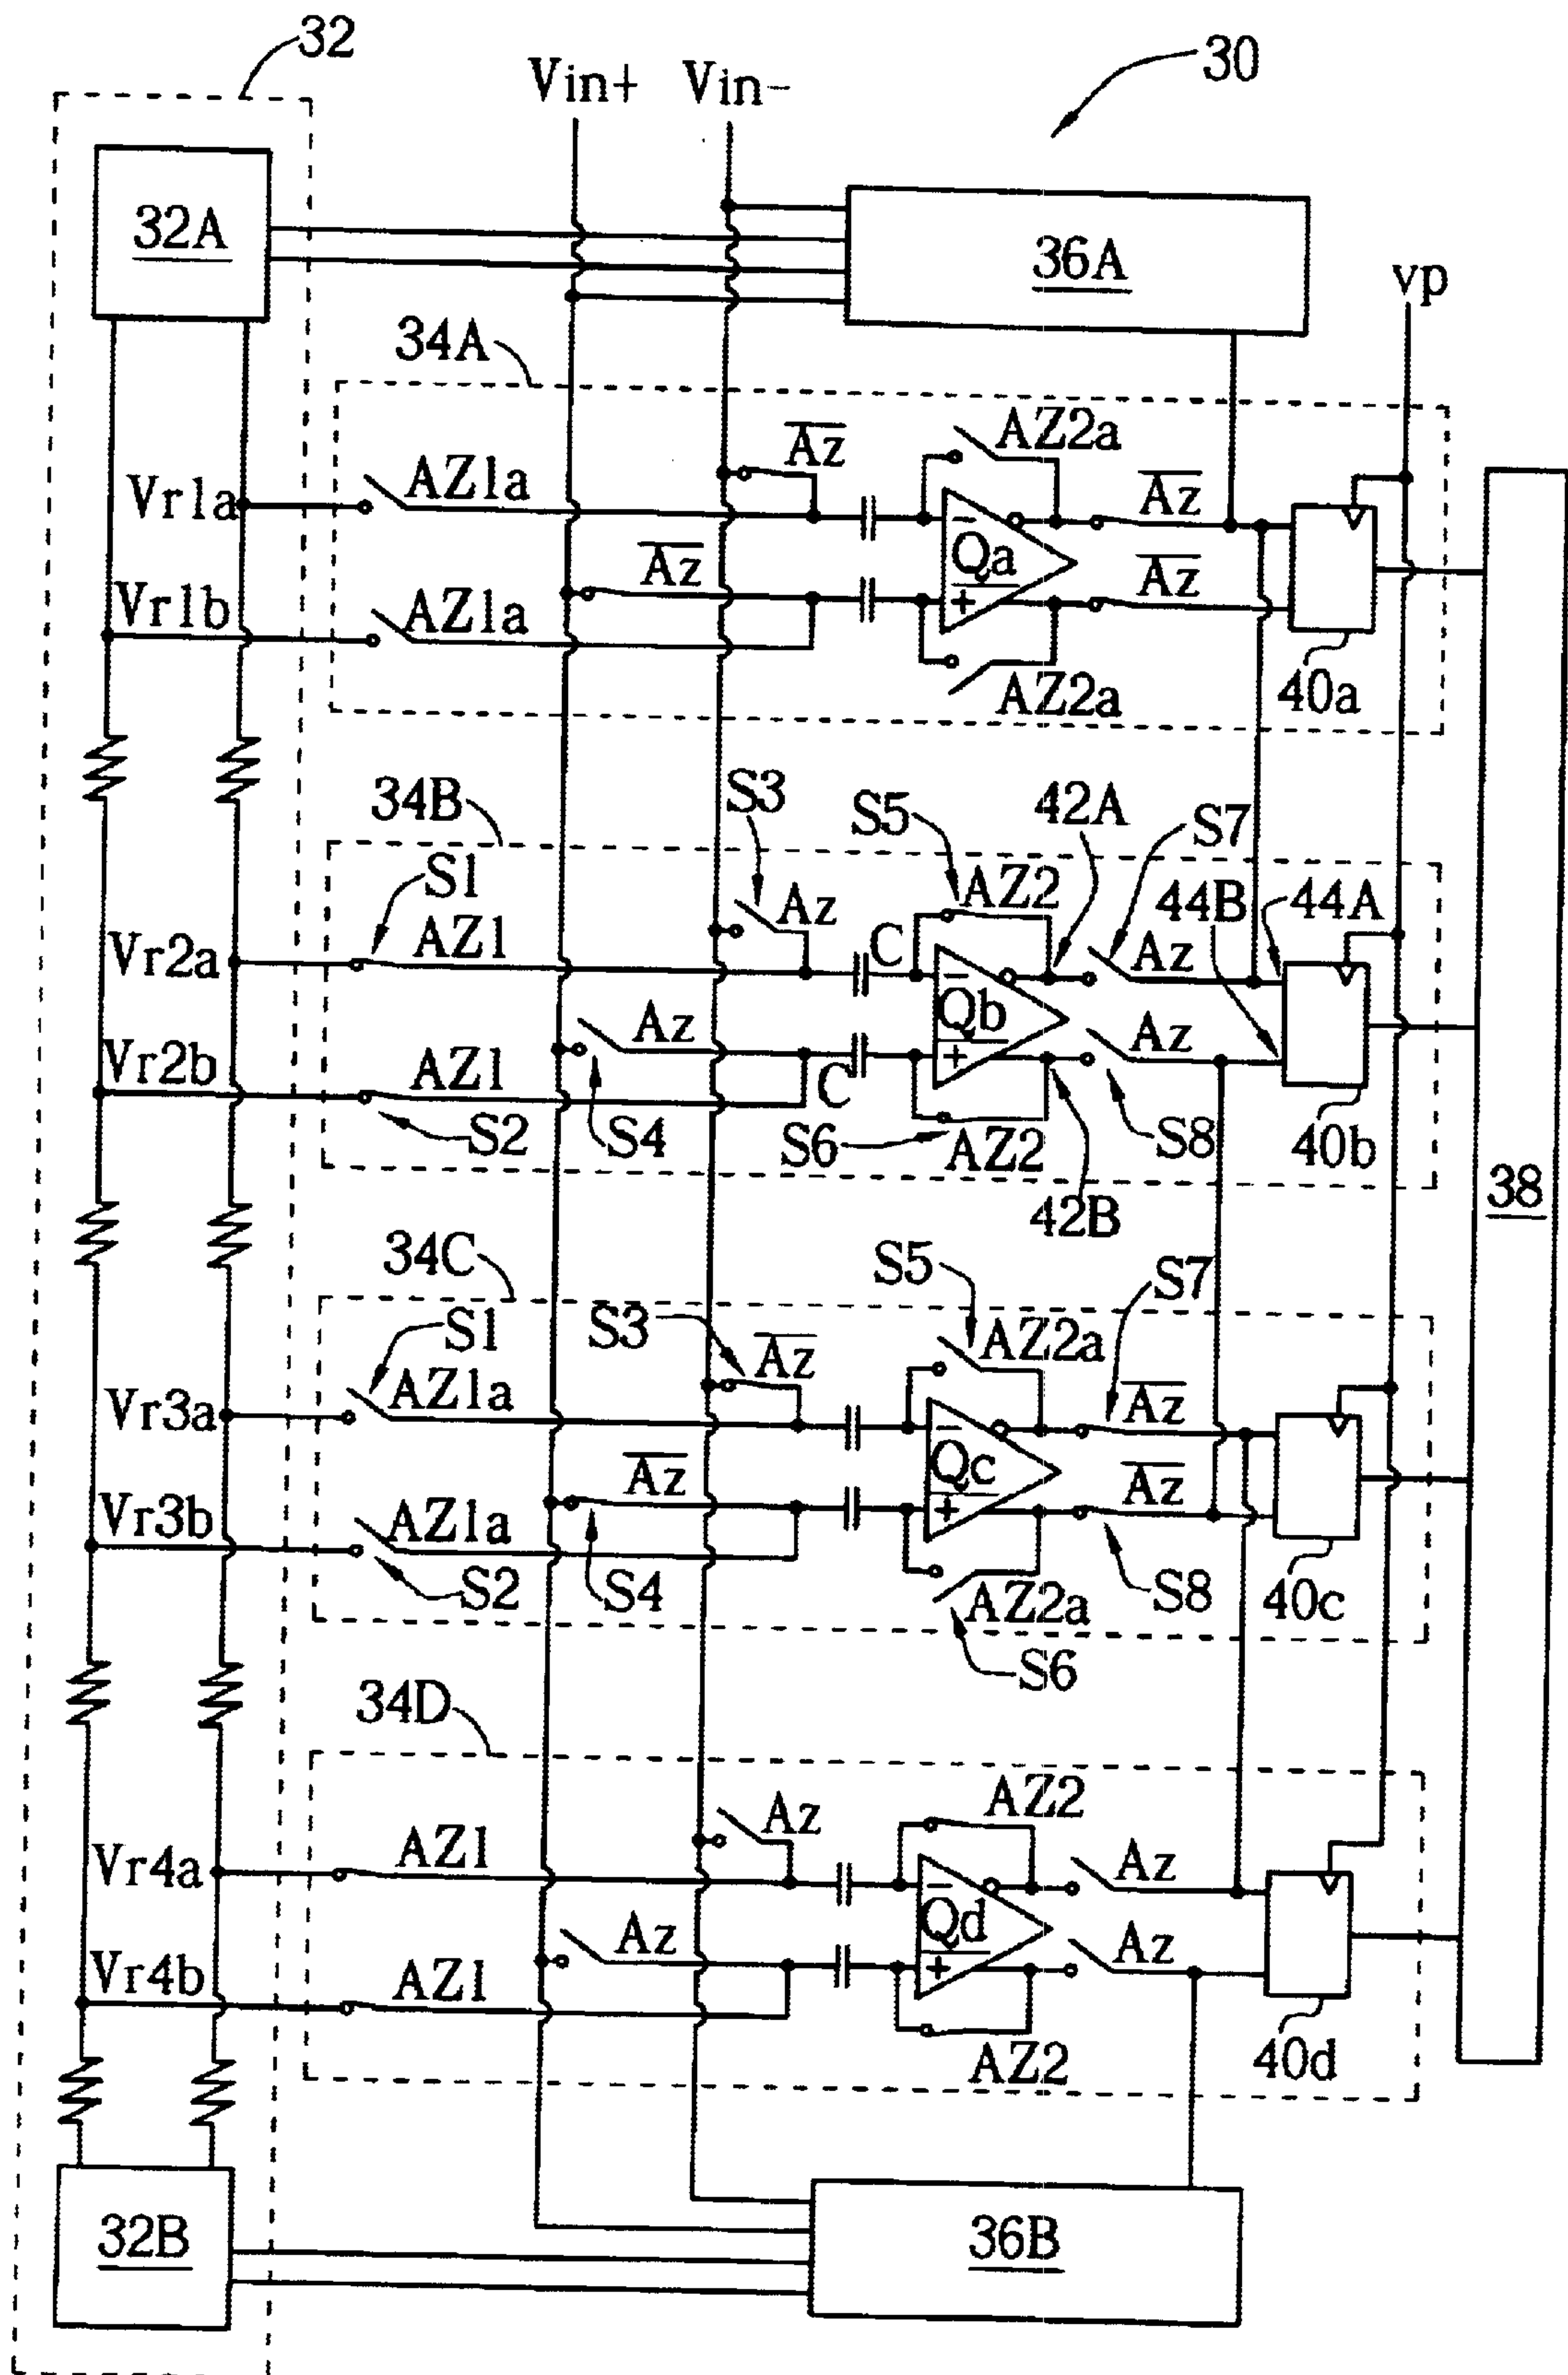 32
Vin+ Vin-
30
32A
36A
vp
34A
A̅z̅ AZ2a
Vr1a AZ1a A̅z̅
Qa
A̅z̅ A̅z̅
Vr1b AZ1a
AZ2a 40a
34B S3 S5 42A S7
S1 Az AZ2 44B 44A
Vr2a AZ1 C Az
Qb
Az Az
Vr2b AZ1 C
S2 S4 S6 AZ2 S8 40b
42B
38
34C S5 S7
S1 S3 A̅z̅ AZ2a
Vr3a AZ1a A̅z̅
Qc
A̅z̅ A̅z̅
Vr3b AZ1a
S2 S4 AZ2a S8 40c
S6
34D
Az AZ2
Vr4a AZ1 Az
Qd
Az Az
Vr4b AZ1
AZ2 40d
32B
36B